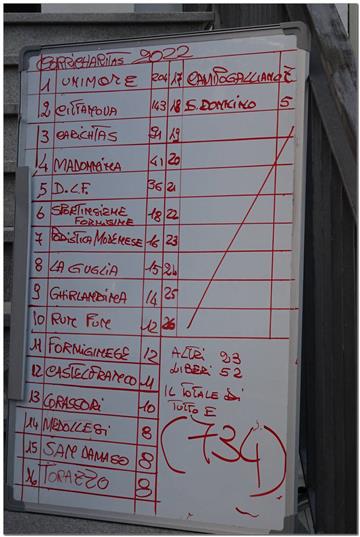 CORRICHARITAS 2022
1 UNIMORE 204
2 CITTANOVA 143
3 CARICHTAS 91
4 MADONNINA 41
5 D.L.F. 36
6 SPORTINSIEME FORMIGINE 18
7 PODISTICA MODENESE 16
8 LA GUGLIA 15
9 GHIRLANDINA 14
10 RUN FUN 12
11 FORMIGINESE 12
12 CASTELFRANCO 11
13 CORASSORI 10
14 MEDOLLESI 8
15 SAN DAMASO 8
16 TORAZZO 8
17 CAMPOGALLIANO
18 S. DONNINO 5
19
20
21
22
23
24
25
26
ALTRI 23
LIBERI 52
IL TOTALE DI
TUTTO E
(734)